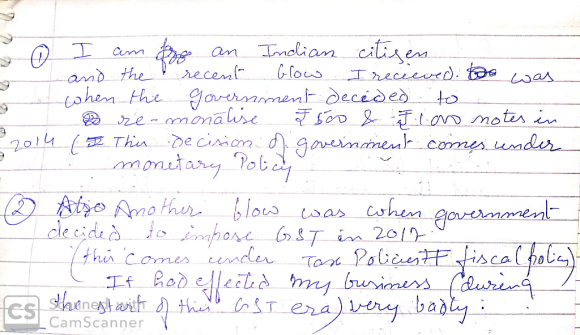 ① I am an Indian citizen
and the recent blow I recieved. was
when the government decided to
re-monatise ₹500 & ₹1000 notes in
2014 (This decision of government comes under
monetary Policy
② Another blow was when government
decided to impose GST in 2017
(this comes under Tax Policies fiscal policy)
It had effected my business (during
the start of this GST era) very badly:
CS Scanned with
CamScanner